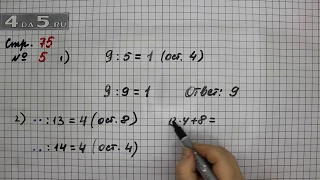 4DA5.RU
Стр. 75
№ 5 1) 9 : 5 = 1 (ост. 4)
9 : 9 = 1 Ответ: 9
2) ·· : 13 = 4 (ост. 8) 13·4+8=
·· : 14 = 4 (ост. 4)